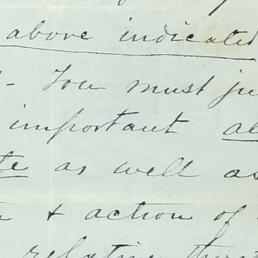 above indicated
- You must
important
as well as
& action of
relating